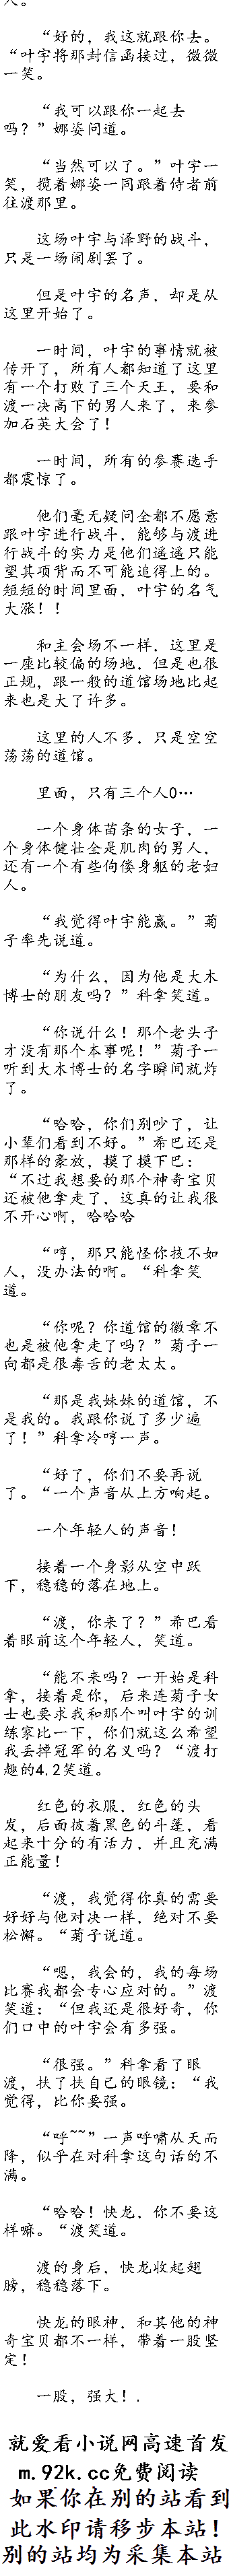 人。
“好的，我这就跟你去。
“叶宇将那封信函接过，微微
一笑。
“我可以跟你一起去
吗？”娜姿问道。
“当然可以了。”叶宇一
笑，揽着娜姿一同跟着侍者前
往渡那里。
这场叶宇与泽野的战斗，
只是一场闹剧罢了。
但是叶宇的名声，却是从
这里开始了。
一时间，叶宇的事情就被
传开了，所有人都知道了这里
有一个打败了三个天王，要和
渡一决高下的男人来了，来参
加石英大会了！
一时间，所有的参赛选手
都震惊了。
他们毫无疑问全都不愿意
跟叶宇进行战斗，能够与渡进
行战斗的实力是他们遥遥只能
望其项背而不可能追得上的。
短短的时间里面，叶宇的名气
大涨！！
和主会场不一样，这里是
一座比较偏的场地，但是也很
正规，跟一般的道馆场地比起
来也是大了许多。
这里的人不多，只是空空
荡荡的道馆。
里面，只有三个人0…
一个身体苗条的女子，一
个身体健壮全是肌肉的男人，
还有一个有些佝偻身躯的老妇
人。
“我觉得叶宇能赢。”菊
子率先说道。
“为什么，因为他是大木
博士的朋友吗？”科拿笑道。
“你说什么！那个老头子
才没有那个本事呢！”菊子一
听到大木博士的名字瞬间就炸
了。
“哈哈，你们别吵了，让
小辈们看到不好。”希巴还是
那样的豪放，摸了摸下巴：
“不过我想要的那个神奇宝贝
还被他拿走了，这真的让我很
不开心啊，哈哈哈
“哼，那只能怪你技不如
人，没办法的啊。“科拿笑
道。
“你呢？你道馆的徽章不
也是被他拿走了吗？”菊子一
向都是很毒舌的老太太。
“那是我妹妹的道馆，不
是我的。我跟你说了多少遍
了！”科拿冷哼一声。
“好了，你们不要再说
了。“一个声音从上方响起。
一个年轻人的声音！
接着一个身影从空中跃
下，稳稳的落在地上。
“渡，你来了？”希巴看
着眼前这个年轻人，笑道。
“能不来吗？一开始是科
拿，接着是你，后来连菊子女
士也要求我和那个叫叶宇的训
练家比一下，你们就这么希望
我丢掉冠军的名义吗？“渡打
趣的4.2笑道。
红色的衣服，红色的头
发，后面披着黑色的斗篷，看
起来十分的有活力，并且充满
正能量！
“渡，我觉得你真的需要
好好与他对决一样，绝对不要
松懈。“菊子说道。
“嗯，我会的，我的每场
比赛我都会专心应对的。”渡
笑道：“但我还是很好奇，你
们口中的叶宇会有多强。
“很强。”科拿看了眼
渡，扶了扶自己的眼镜：“我
觉得，比你要强。
“呼~~”一声呼啸从天而
降，似乎在对科拿这句话的不
满。
“哈哈！快龙，你不要这
样嘛。“渡笑道。
渡的身后，快龙收起翅
膀，稳稳落下。
快龙的眼神，和其他的神
奇宝贝都不一样，带着一股坚
定！
一股，强大！.
就爱看小说网高速首发
m.92k.cc免费阅读
如果你在别的站看到
此水印请移步本站！
别的站均为采集本站